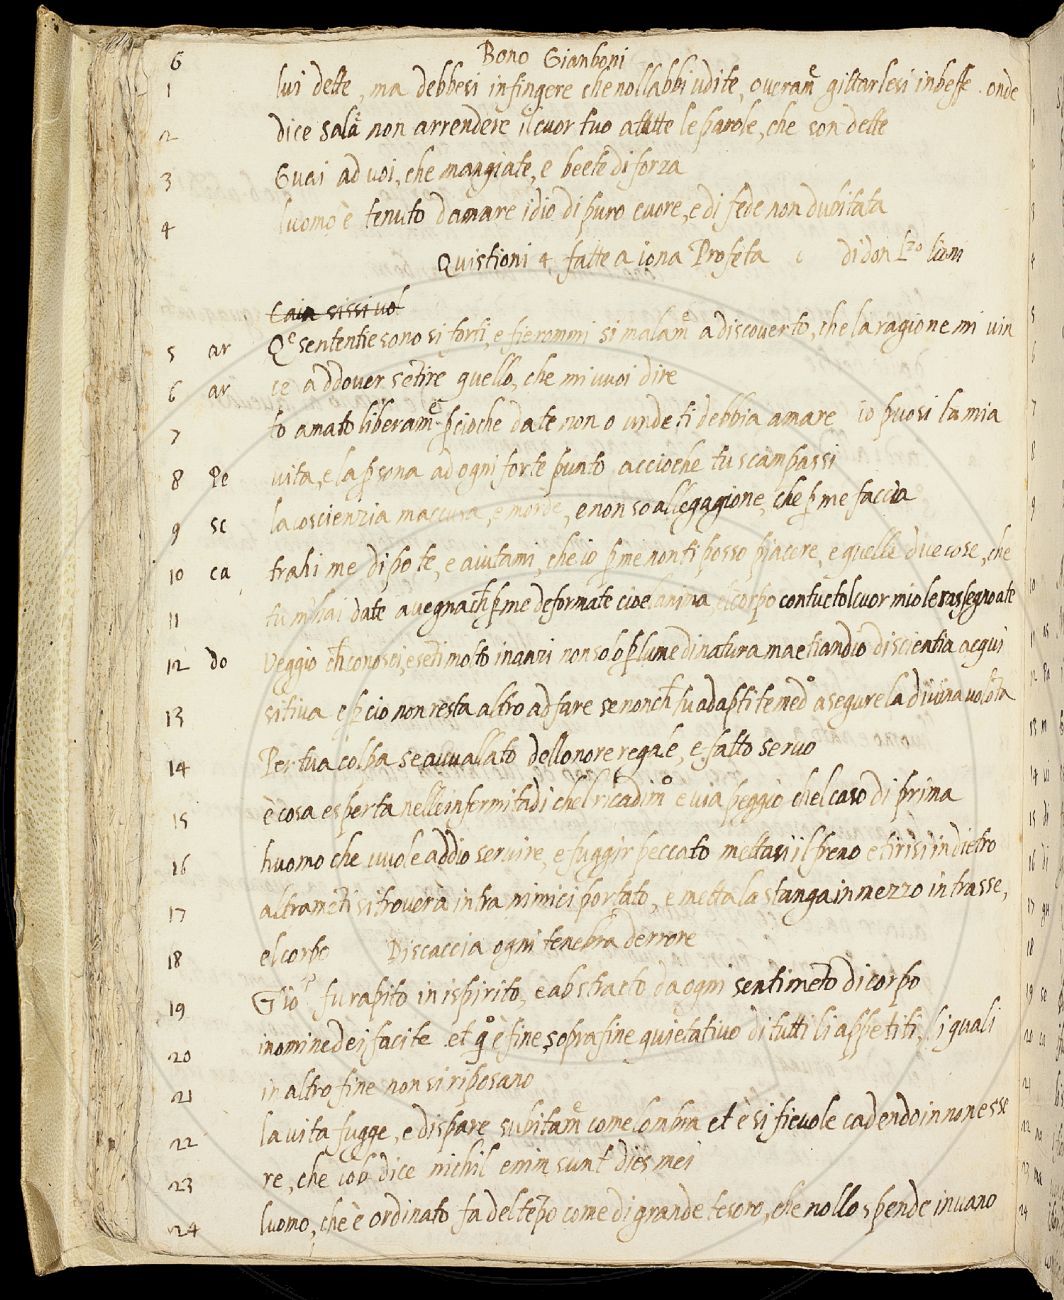 6 Bono Gianboni
1 lui dette, ma debbesi infingere che nollabbi udite, overamē gittarlesi inbeffe. onde
2 dice Salā non arrendere il cuor tuo attutte le parole, che son dette
3 Guai ad voi, che mangiate, e beete di forza
4 luomo è tenuto damare idio di puro cuore, e di fede non dubitata
Quistioni 4 fatte a iona Profeta di don Lzo
5 ar Qe sententie sono si forti, e fierommi si malamē a discoverto, che la ragione mi vin
6 ar ce addover sētire quello, che mi vuoi dire
7 to amato liberamē pcioche da te non o unde ti debbia amare io puosi la mia
8 Pe vita, e la psona ad ogni forte punto accioche tu scampassi
9 sc la coscienzia maccusa, e morde, e non so allegagione, che p me faccia
10 ca trahi me di po te, e aiutami, che io p me non ti posso piacere, e quelle due cose, che
11 tu m'hai date avegnach p me deformate cioe lanima el corpo contucto l cuor mio le rassegno a te
12 do Veggio ch conosci, e senti molto inanzi non so o p lume di natura ma etiandio di scientia acqui
13 sitiva e p cio non resta altro ad fare se non ch tu adapti te medo a segure la divina volōta
14 Per tua colpa se avvallato dellonore regale, e fatto servo
15 è cosa esperta nelle infermitadi chel ricadimo e via peggio chel caso di prima
16 huomo che vuole addio servire, e fuggir peccato mettasi il freno e tirisi indietro
17 altramēti si troverà intra nimici portato, e metta la stanga in mezzo intrasse,
18 el corpo Discaccia ogni tenebra derrore
19 Gio fu rapito in ispirito, e abstracto da ogni sentimēto di corpo
20 inomine dei facite et qo è fine soprafine quietativo di tutti li appetiti, li quali
21 in altro fine non si riposano
22 la vita fugge, e dispare subitamē come lombra et e si fievole cadendo in non esse
23 re, che iob dice nichil enim sunt dies mei
24 luomo, che è ordinato fa del tēpo come di grande tesoro, che nollo spende invano